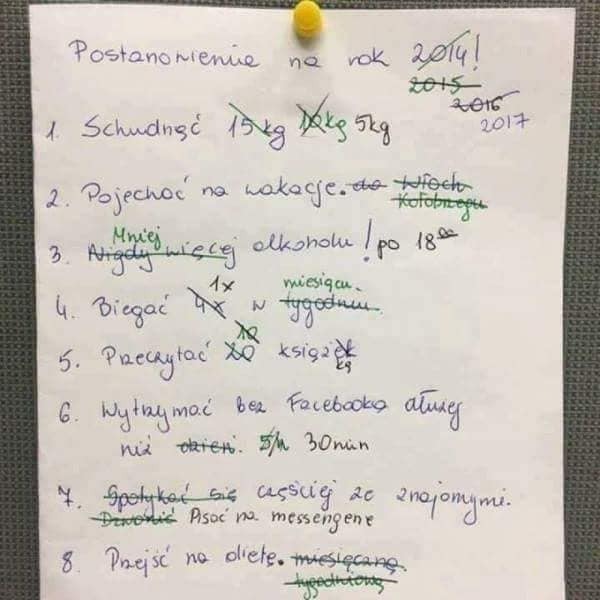 Postanowienie na rok 2014!
2015
2016
2017
1. Schudnąć 15kg 10kg 5kg
2. Pojechać na wakacje. do Włoch
Kołobrzegu
Mniej
3. Nigdy więcej alkoholu! po 18⁰⁰
1x miesiącu.
4. Biegać 4x w tygodniu.
10
5. Przeczytać 20 książek
kę
6. Wytrzymać bez Facebooka dłużej
niż dzień. 5h 30min
7. Spotykać się częściej ze znajomymi.
Dzwonić Pisać na messengerze
8. Przejść na dietę. miesięczną
tygodniową